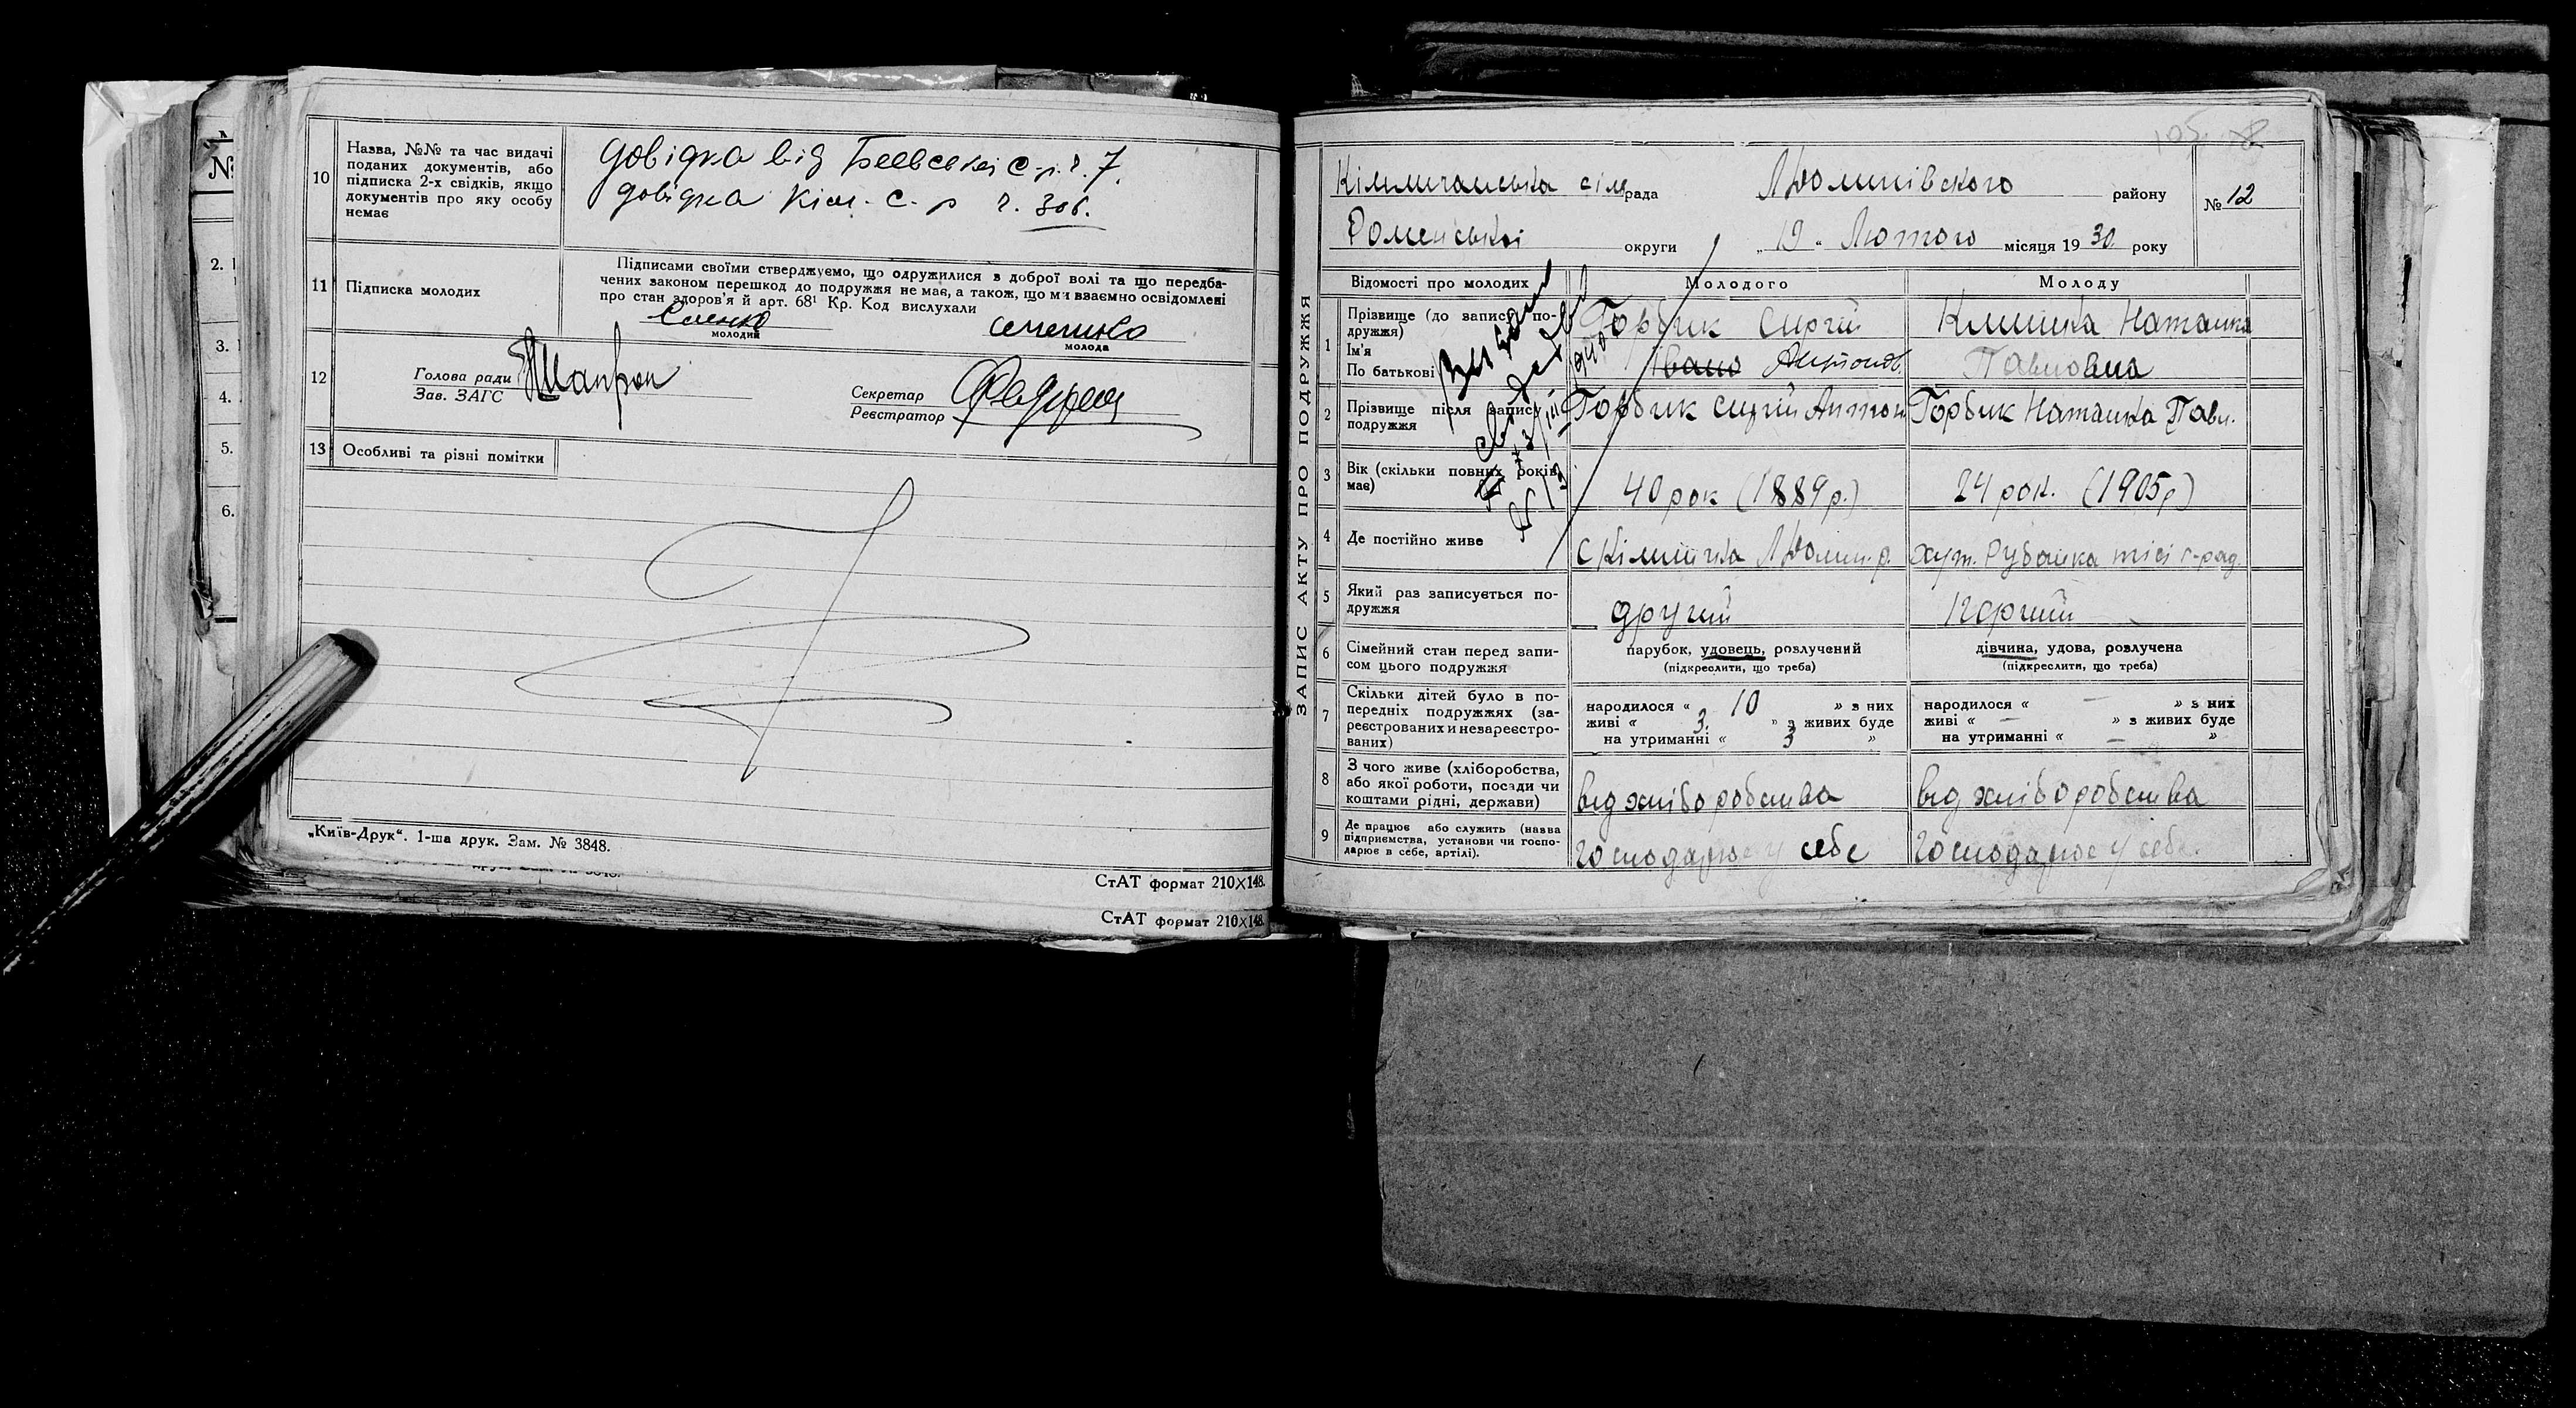 10
Назва, №№ та час видачі
поданих документів, або
підписка 2-х свідків, якщо
документів про яку особу
немає
довідка від Беевської С-р. ч. 7.
довідка Кім. С-р ч. 306.
11
Підписка молодих
Підписами своїми стверджуємо, що одружилися з доброї волі та що передба-
чених законом перешкод до подружжя не має, а також, що ми взаємно освідомлені
про стан здоров'я й арт. 68¹ Кр. Код вислухали
молодий
молода
12
Голова ради
Зав. ЗАГС
Секретар
Реєстратор
13 Особливі та різні помітки
„Київ-Друк“. 1-ша друк. Зам. № 3848.
СтАТ формат 210×148.
СтАТ формат 210×148.
№
2.
3.
4.
5.
6.
ЗАПИС АКТУ ПРО ПОДРУЖЖЯ
рада
району
№ 12
Роменської округи „19“ Лютого місяця 1930 року
Відомості про молодих
Молодого
Молоду
1
Прізвище (до запису по-
дружжя)
Ім'я
По батькові
Горбик Сергій
Івано Антонов.
Наталка
Павловна
2
Прізвище після запису
подружжя
Горбик Сергій Антон
Горбик Наталка Павл.
3
Вік (скільки повних років
має)
40 рок (1889 р.)
24 рок. (1905 р)
4
Де постійно живе
с Кімличка
хут. Рубанка тієї с-рад.
5
Який раз записується по-
дружжя
другий
перший
6
Сімейний стан перед запи-
сом цього подружжя
парубок, удовець, розлучений
(підкреслити, що треба)
дівчина, удова, розлучена
(підкреслити, що треба)
7
Скільки дітей було в по-
передніх подружжях (за-
реєстрованих и незареєстро-
ваних)
народилося « 10 » з них
живі « 3. » з живих буде
на утриманні « 3 »
народилося « — » з них
живі « — » з живих буде
на утриманні « — »
8
З чого живе (хліборобства,
або якої роботи, посади чи
коштами рідні, держави)
від хліборобства
від хліборобства
9
Де працює або служить (назва
підприємства, установи чи госпо-
дарює в себе, артілі).
господарює у себе
господарює у себе.